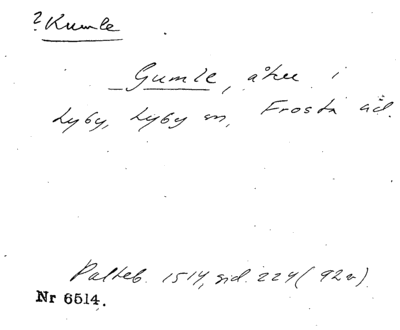 ? Kumle
Gumle, åker i
Lyby, Lyby sn, Frosta äd.
Palteb. 1514, sid. 224 (92v)
Nr 6514.